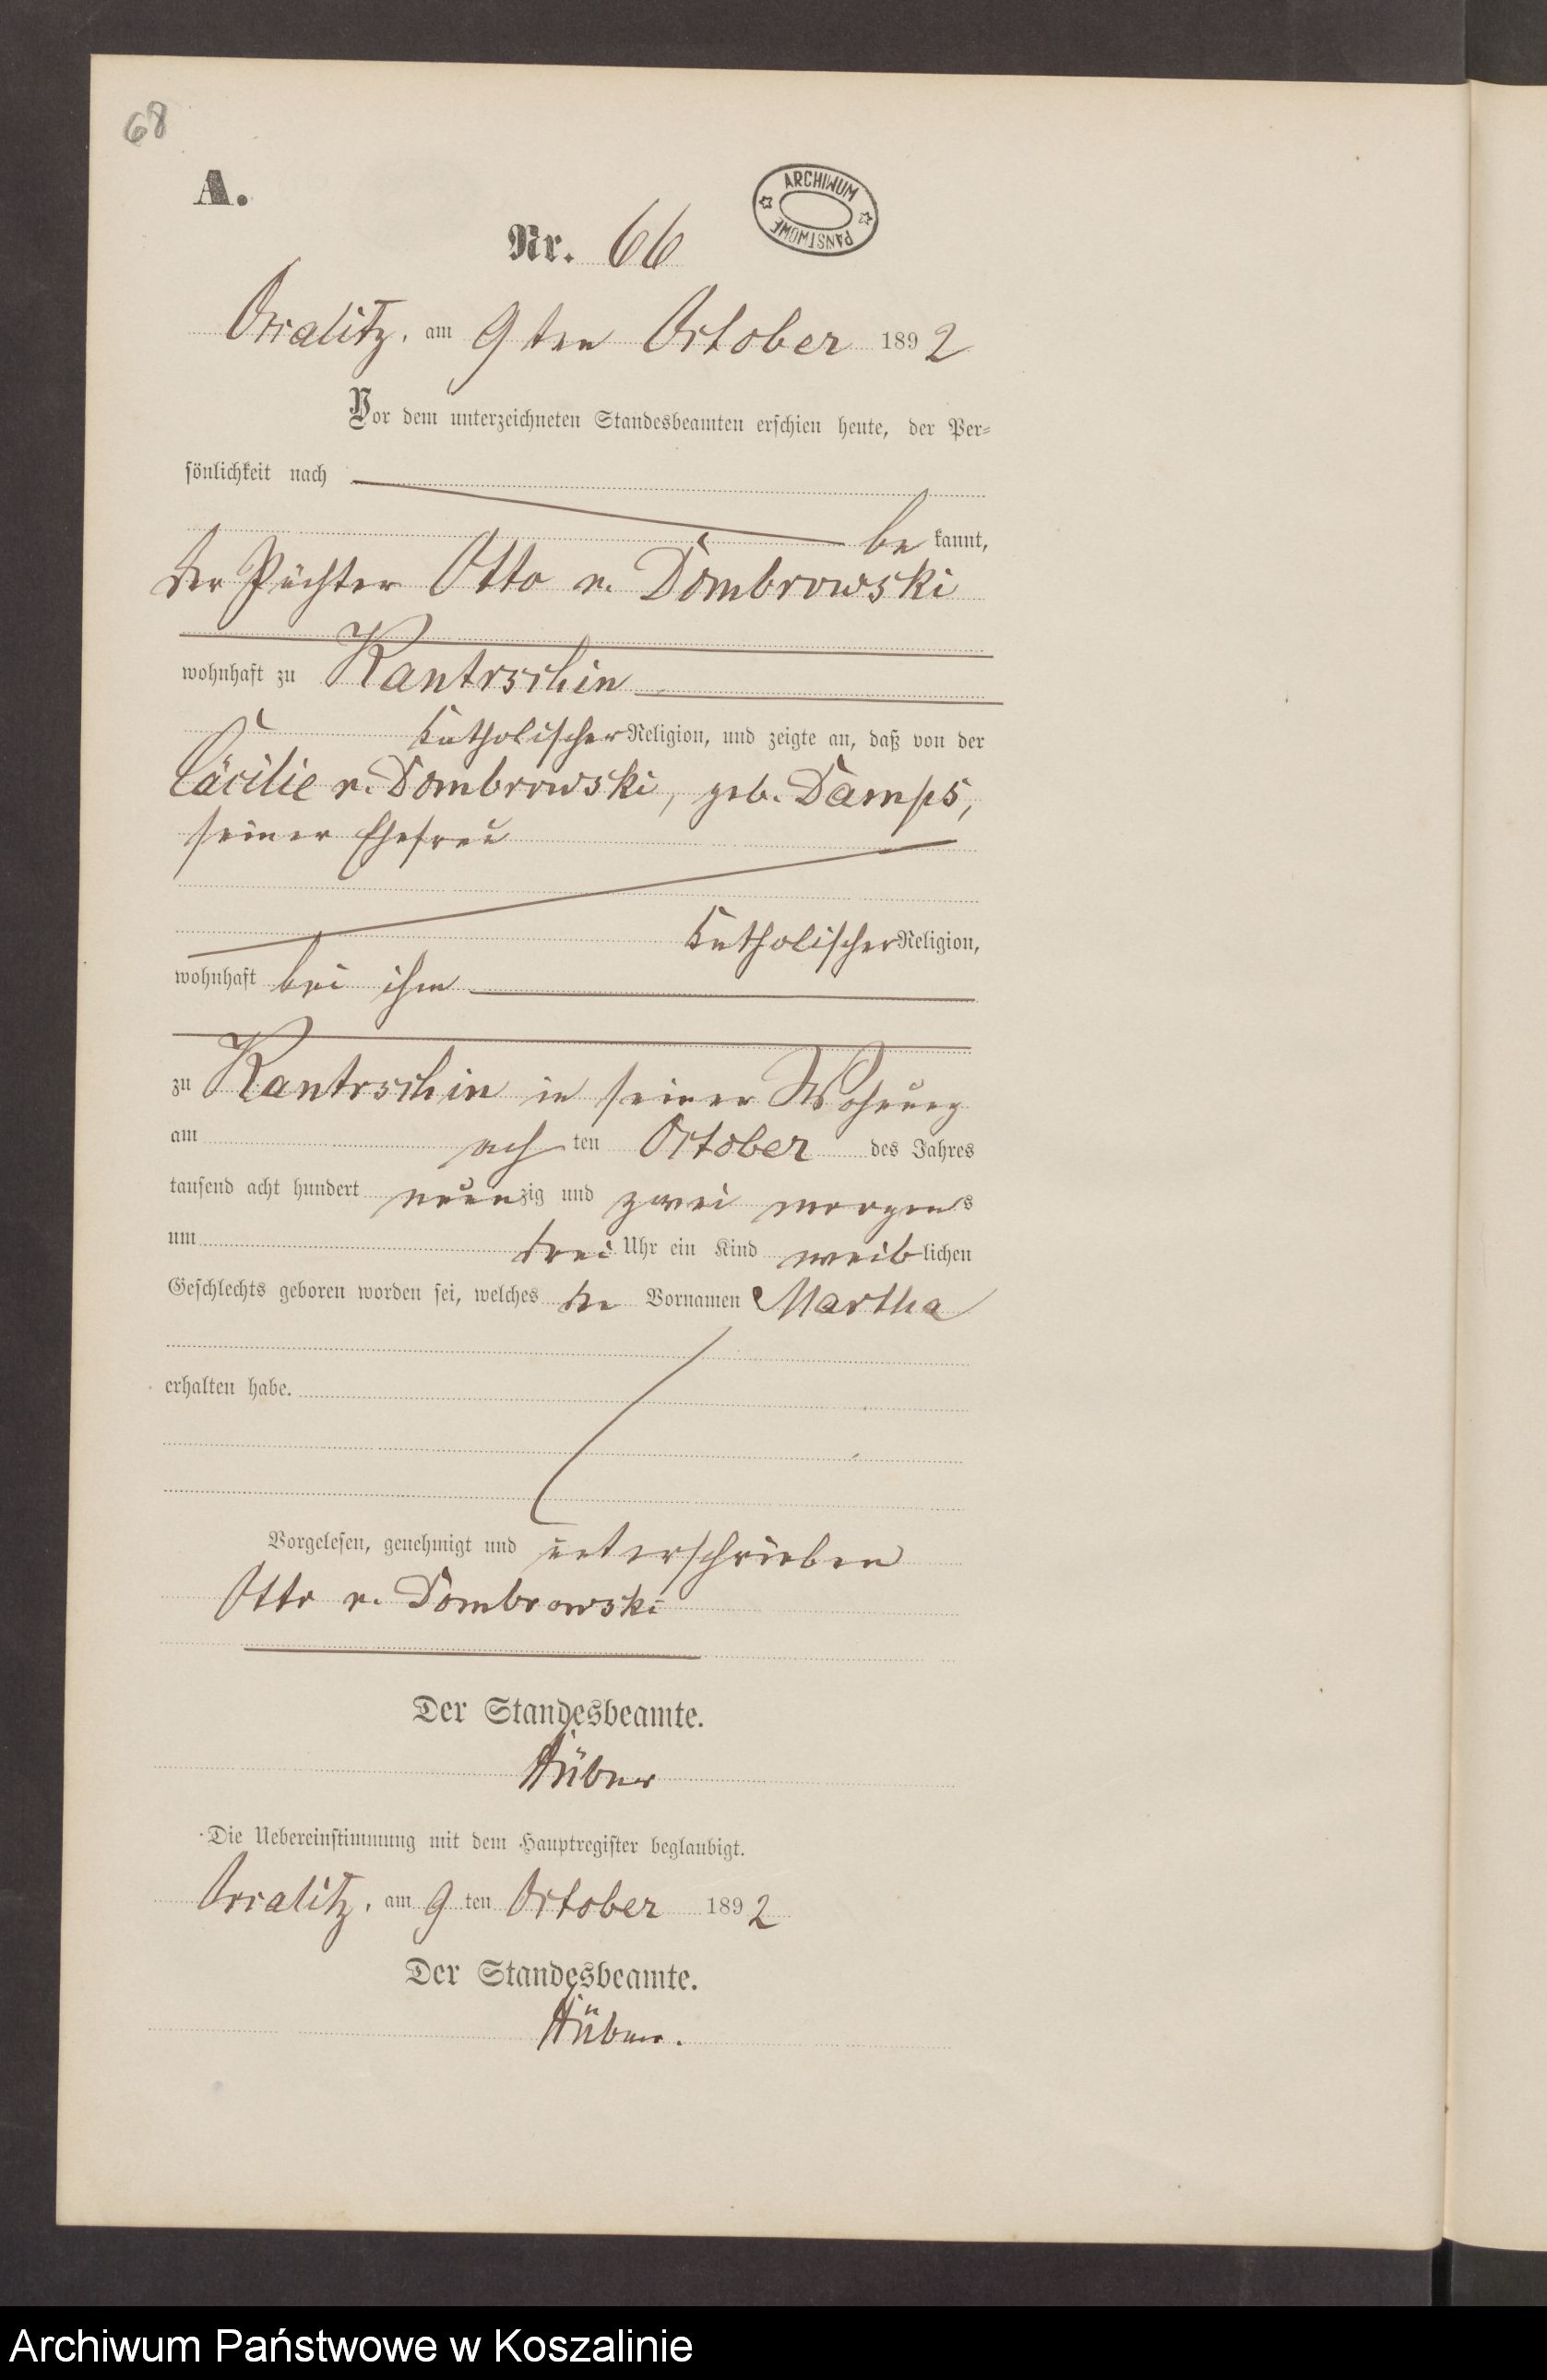 68
A.
ARCHIWUM PAŃSTWOWE
Nr. 66
Ossalitz. am 9ten October 1892
Vor dem unterzeichneten Standesbeamten erschien heute, der Per-
sönlichkeit nach
be kannt,
der Pächter Otto v. Dombrowski
wohnhaft zu Kantrschin
katholischer Religion, und zeigte an, daß von der
Cäcilie v. Dombrowski, geb. Damps,
seiner Ehefrau
katholischer Religion,
wohnhaft bei ihm
zu Kantrschin in seiner Wohnung
am achten October des Jahres
tausend acht hundert neunzig und zwei morgens
um drei Uhr ein Kind weiblichen
Geschlechts geboren worden sei, welches den Vornamen Martha
erhalten habe.
Vorgelesen, genehmigt und unterschrieben
Otto v. Dombrowski
Der Standesbeamte.
Die Uebereinstimmung mit dem Hauptregister beglaubigt.
Ossalitz. am 9ten October 1892
Der Standesbeamte.
Archiwum Państwowe w Koszalinie